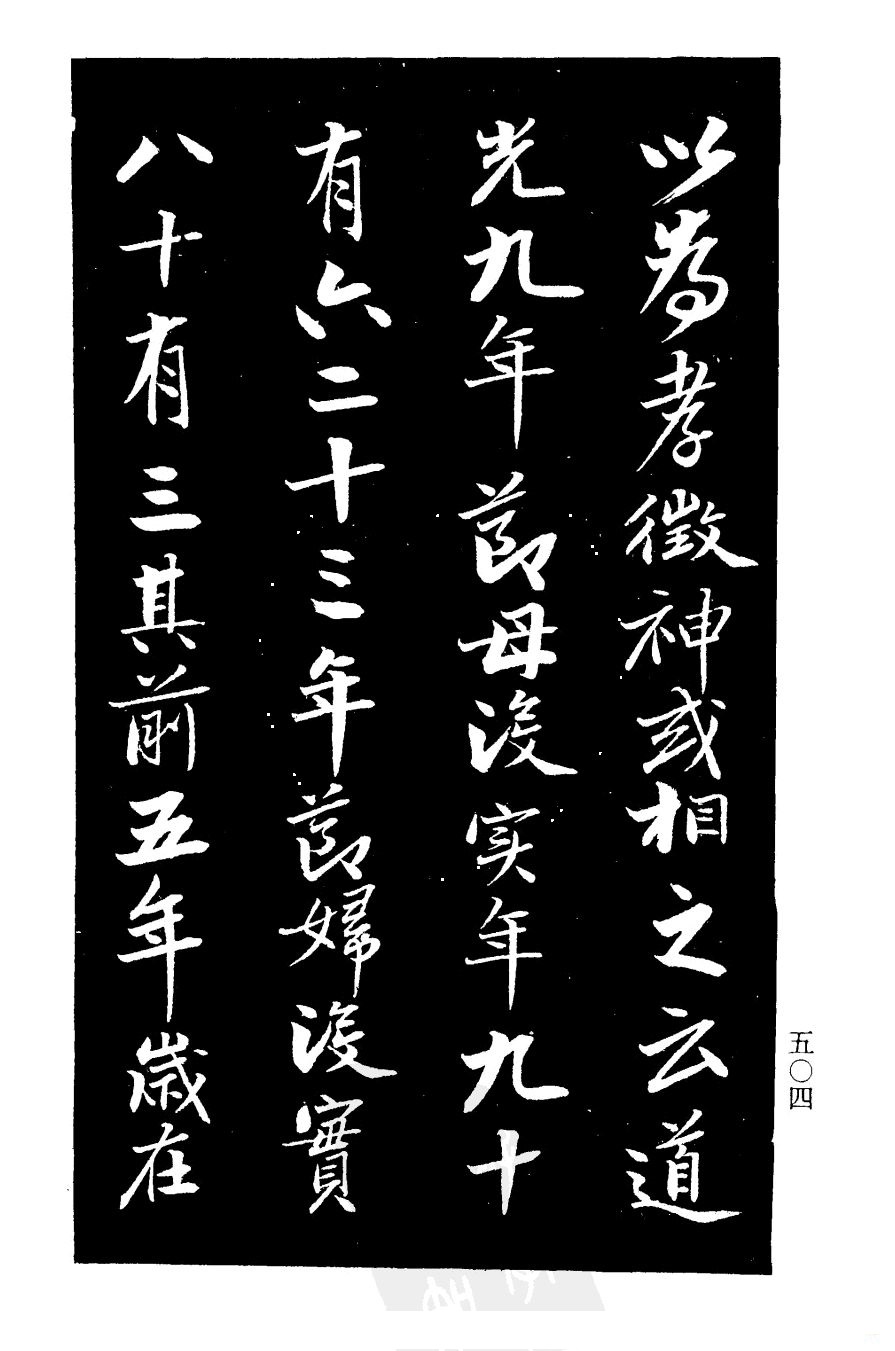 以為孝徵神或相之云道
光九年節母没实年九十
有六二十三年節婦没實
八十有三其前五年歲在
五〇四